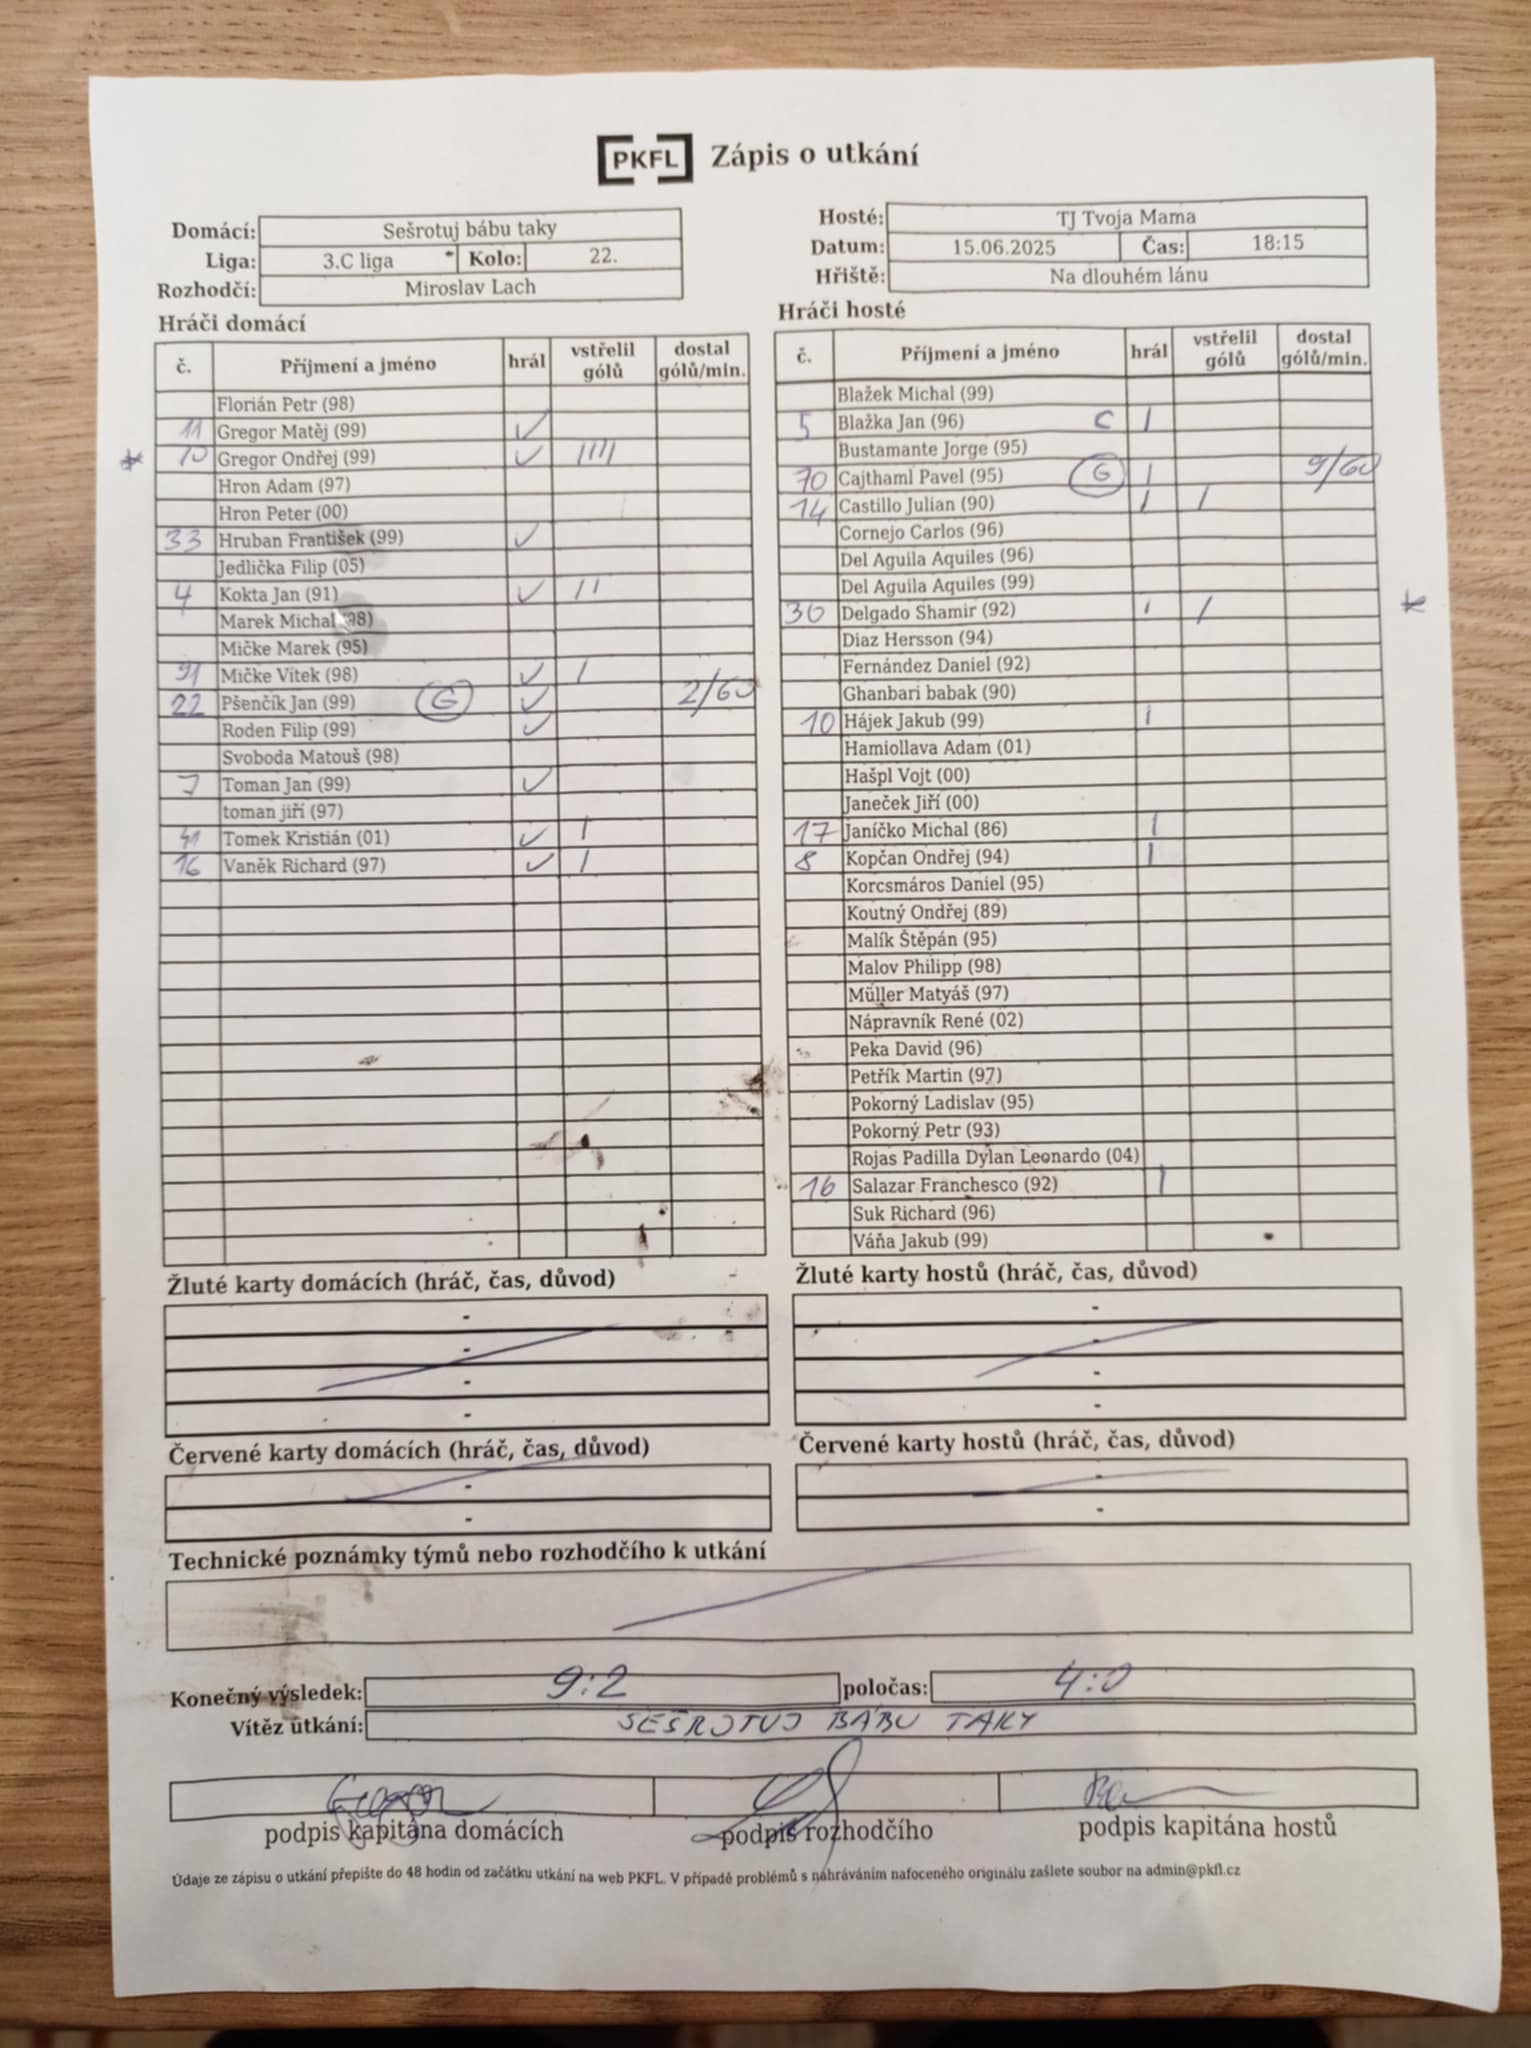 PKFL Zápis o utkání
Domácí: Sešrotuj bábu taky
Liga: 3.C liga Kolo: 22.
Rozhodčí: Miroslav Lach
Hosté: TJ Tvoja Mama
Datum: 15.06.2025 Čas: 18:15
Hřiště: Na dlouhém lánu
Hráči domácí
č. Příjmení a jméno hrál vstřelil gólů dostal gólů/min.
Florián Petr (98)
11 Gregor Matěj (99) ✓
* 10 Gregor Ondřej (99) ✓ ||||
Hron Adam (97)
Hron Peter (00)
33 Hruban František (99) ✓
Jedlička Filip (05)
4 Kokta Jan (91) ✓ ||
Marek Michal (98)
Mičke Marek (95)
91 Mičke Vítek (98) ✓ |
22 Pšenčík Jan (99) G ✓ 2/60
Roden Filip (99) ✓
Svoboda Matouš (98)
7 Toman Jan (99) ✓
toman jiří (97)
Tomek Kristián (01) ✓ |
16 Vaněk Richard (97) ✓ |
Hráči hosté
č. Příjmení a jméno hrál vstřelil gólů dostal gólů/min.
Blažek Michal (99)
5 Blažka Jan (96) C |
Bustamante Jorge (95)
70 Cajthaml Pavel (95) G | 9/60
14 Castillo Julian (90) | |
Cornejo Carlos (96)
Del Aguila Aquiles (96)
Del Aguila Aquiles (99)
30 Delgado Shamir (92) | | *
Diaz Hersson (94)
Fernández Daniel (92)
Ghanbari babak (90)
10 Hájek Jakub (99) |
Hamiollava Adam (01)
Hašpl Vojt (00)
Janeček Jiří (00)
17 Janíčko Michal (86) |
8 Kopčan Ondřej (94) |
Korcsmáros Daniel (95)
Koutný Ondřej (89)
Malík Štěpán (95)
Malov Philipp (98)
Müller Matyáš (97)
Nápravník René (02)
Peka David (96)
Petřík Martin (97)
Pokorný Ladislav (95)
Pokorný Petr (93)
Rojas Padilla Dylan Leonardo (04)
16 Salazar Franchesco (92) |
Suk Richard (96)
Váňa Jakub (99)
Žluté karty domácích (hráč, čas, důvod)
-
-
-
-
Žluté karty hostů (hráč, čas, důvod)
-
-
-
-
Červené karty domácích (hráč, čas, důvod)
-
-
Červené karty hostů (hráč, čas, důvod)
-
-
Technické poznámky týmů nebo rozhodčího k utkání
Konečný výsledek: 9:2 poločas: 4:0
Vítěz utkání: SEŠROTUJ BÁBU TAKY
podpis kapitána domácích podpis rozhodčího podpis kapitána hostů
Údaje ze zápisu o utkání přepište do 48 hodin od začátku utkání na web PKFL. V případě problémů s nahráváním nafoceného originálu zašlete soubor na admin@pkfl.cz